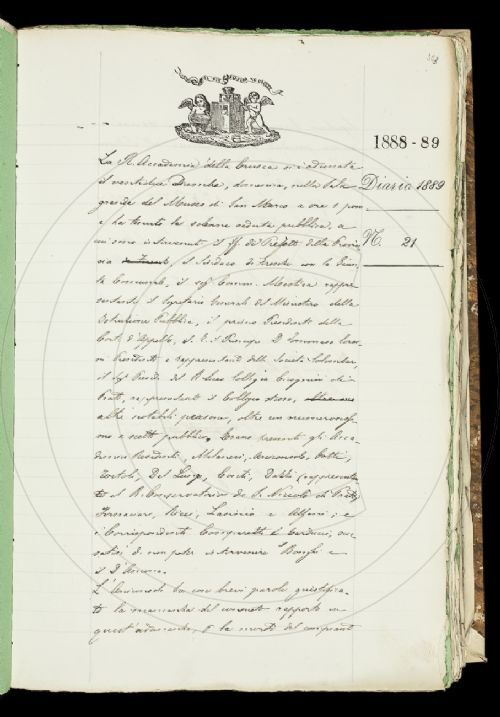 1888-89
Diario 1889
N. 21
La R. Accademia della Crusca si è adunata
il Dicembre, domenica, nella Sala
grande del Museo di San Marco a ore 1 pom.
e ha tenuto la solenne seduta pubblica, a
cui sono intervenuti il ff. di Prefetto della Provin
cia, il Sindaco di Firenze con la Giun
ta Comunale, il Comm. rappre
sentante il Segretario Generale del Ministero della
Istruzione Pubblica, il primo Presidente della
Corte d'Appello, S. E. il Principe D. Tommaso Corsi
ni Presidente e rappresentante della Società Colombaria,
il Presid. del R. Liceo Collegio Cicognini di
Prato, rappresentante il Collegio stesso,
altri notabili persone, oltre un numerosissi
mo e scelto pubblico. Erano presenti gli Acca
demici Residenti, Milanesi, Conti,
Tortoli, Del Lungo, Dazzi (rappresentan
te il R. Conservatorio di S. Niccolò di Prato),
Fornaciari, Rizzi, e Alfani; e
i Corrispondenti Comparetti e Carducci,
di non poter intervenire il Bonghi e
il D'Ancona.
L'Arciconsolo con brevi parole giustifica
la mancanza del consueto rapporto in
quest'adunanza, e la morte del compianto